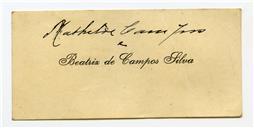 Mathilde Campos
e
Beatriz de Campos Silva